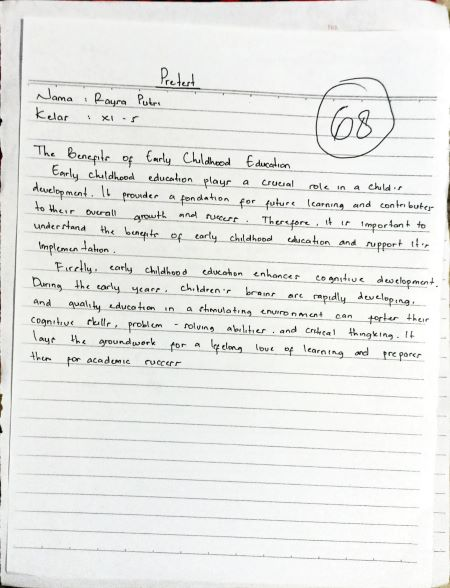 Pretest
Nama : Rayra Putri
Kelas : XI - 5
68
The Benefits of Early Childhood Education
Early childhood education plays a crucial role in a child's
development. It provides a fondation for future learning and contributes
to their overall growth and success. Therefore, it is important to
understand the benefits of early childhood education and support it's
implementation.
Firstly, early childhood education enhances cognitive development.
During the early years, children's brains are rapidly developing,
and quality education in a stimulating environment can foster their
cognitive skills, problem - solving abilities, and critical thingking. It
lays the groundwork for a lifelong love of learning and prepares
them for academic success